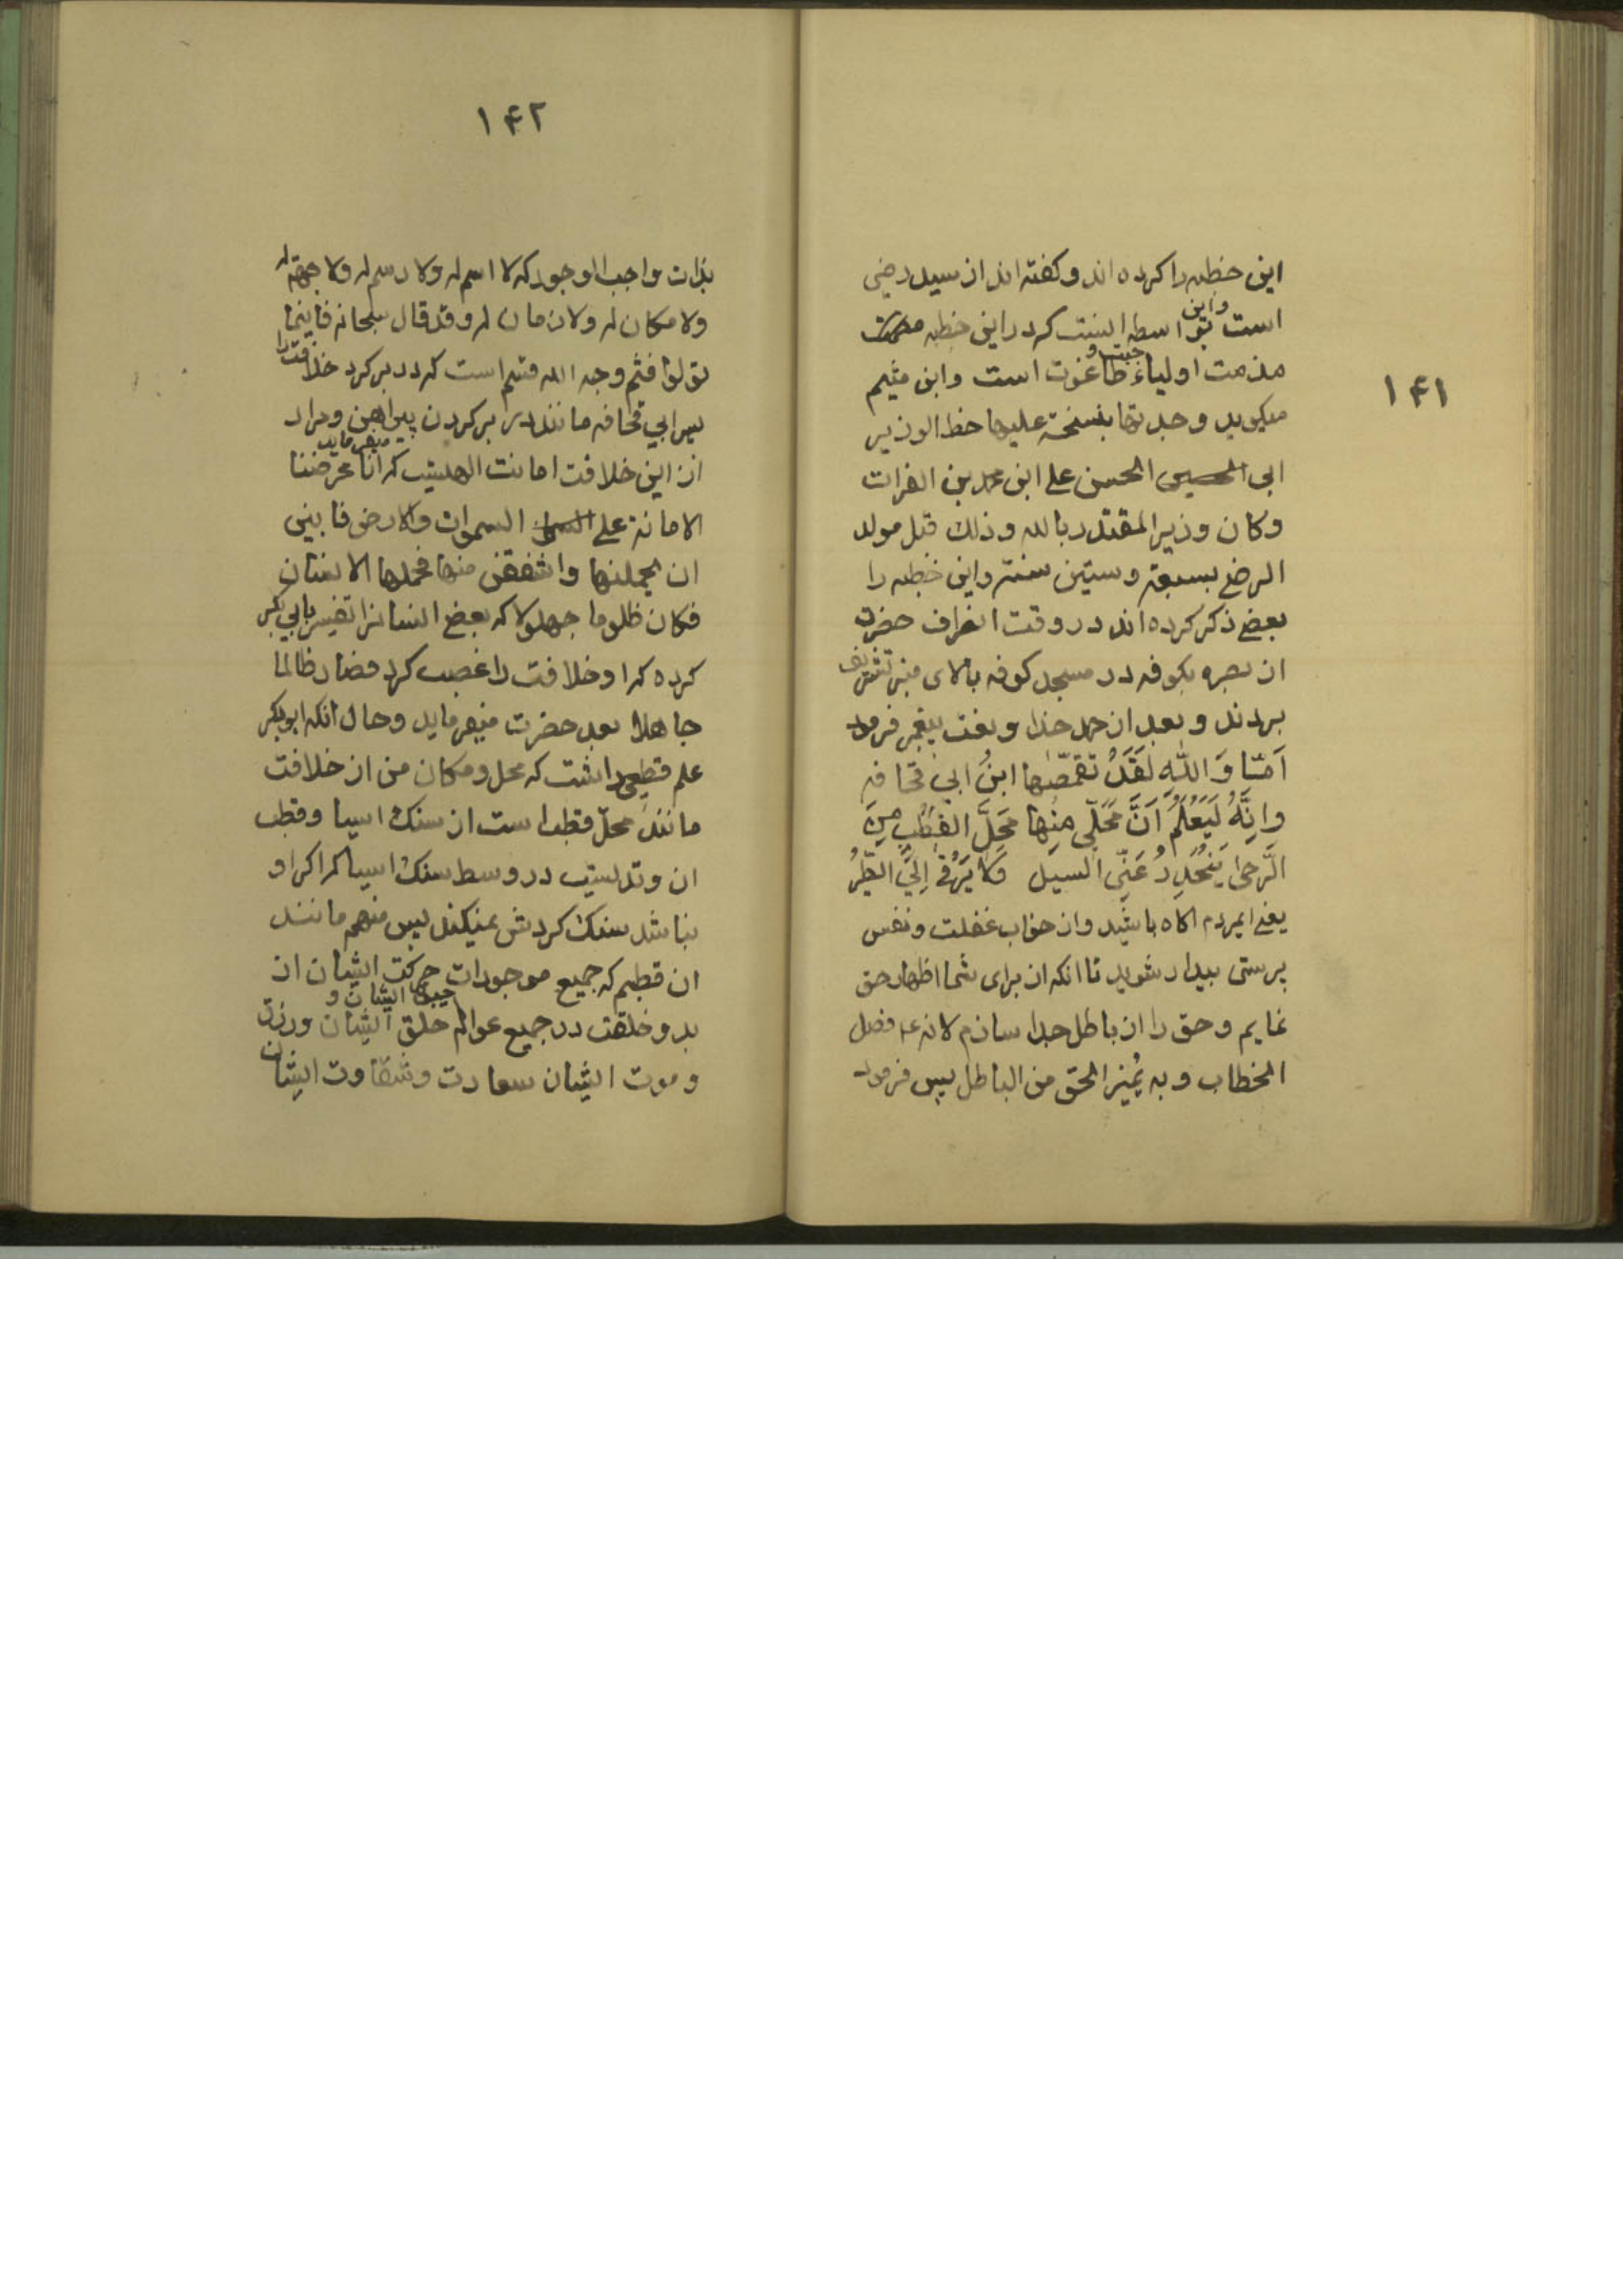 ۱۴۱
این خطبه را کرده اند و کفته اند از سید رضی
است و این بواسطه اینست که در این خطبه
مذمت اولیاء جبت و طاغوت است و ابن میثم
میکوید وجدتها بنسخة علیها خط الوزیر
ابی الحسن علی ابن محمد بن الفرات
وکان وزیر المقتدر بالله وذلك قبل مولد
الرضی بسبعة وستین سنة واین خطبه را
بعضی ذکر کرده اند در وقت انصراف حضرت
از بصره بکوفه در مسجد کوفه بالای منبر تشریف
بردند و بعد از حمد خدا و نعت پیغمبر فرمود
اَمَا وَ اللّٰهِ لَقَدْ تقمّصها ابنُ ابی قحافه
وَاِنَّهُ لَیَعْلَمُ اَنَّ مَحَلّی مِنْها مَحَلَّ القُطْبِ مِنَ
الرَّحیٰ یَنْحَدِرُ عَنِّی السیل وَلا یَرْقیٰ اِلَیَّ الطّیْرُ
یعنی ایمردم اکاه باشید و از خواب غفلت و نفس
پرستی بیدار شوید تا انکه از برای شما اظهار حق
نمایم و حق را از باطل جدا سازم لانه ع فصل
الخطاب و به یُمیز الحق من الباطل پس فرمود
۱۴۲
بذات واجب الوجود که لا اسم له ولا رسم له ولا جهة له
ولا مکان له ولا زمان له وقد قال سبحانه فاینما
تولوا فثم وجه الله قسم است که در بر کرد خلافت را
پسر ابی قحافه مانند در بر کردن پیراهن و مراد
از این خلافت امانت الهیست که میفرماید انا عرضنا
الامانة علی السموات والارض فابین
ان یحملنها واشفقن منها فحملها الانسان
فکان ظلوما جهولا که بعضی انسانرا تفسیر بابی بکر
کرده که او خلافت را غصب کرد فصار ظالما
جاهلا بعد حضرت میفرماید وحال انکه ابوبکر
علم قطعی داشت که محل ومکان من از خلافت
مانند محلّ قطب است از سنك اسیا وقطب
ان وتدیست در وسط سنك اسیا که اکر او
نباشد سنك کردش نمیکند پس منهم مانند
ان قطبم که جمیع موجودات حرکت ایشان از
بدو خلقت در جمیع عوالم خلق ایشان و حیوة ایشان و رزق
و موت ایشان سعادت وشقاوت ایشان